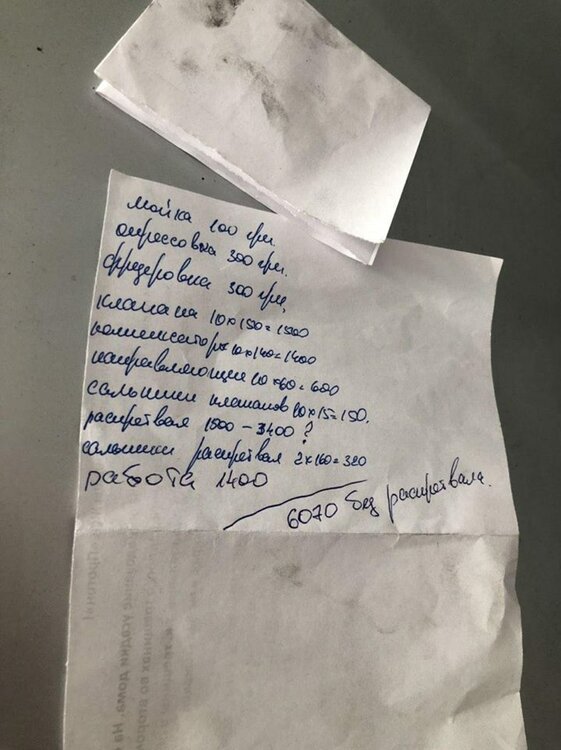 мойка 100 грн.
опрессовка 300 грн.
фрезеровка 300 грн.
клапана 10×150=1500
компенсатор 10×140=1400
направляющие 10×60=600
сальники клапанов 10×15=150.
распредвал 1800 – 3400 ?
сальники распредвал 2×160=320
работа 1400
6070 без распредвала.